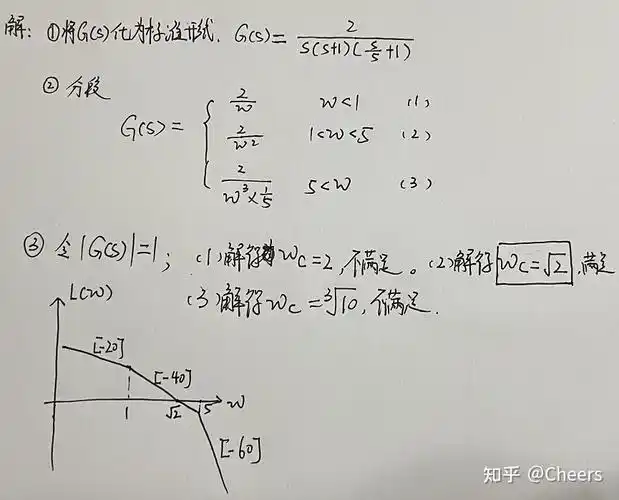 解: ①将G(s)化为标准形式. G(s)= 2/(s(s+1)(s/5+1))
② 分段
G(s)= { 2/w w<1 (1)
2/w² 1<w<5 (2)
2/(w³×1/5) 5<w (3)
③ 令|G(s)|=1; (1)解得wc=2,不满足。(2)解得wc=√2,满足
(3)解得wc=³√10,不满足.
L(w)
[-20]
[-40]
1 √2 5 w
[-60]
知乎 @Cheers